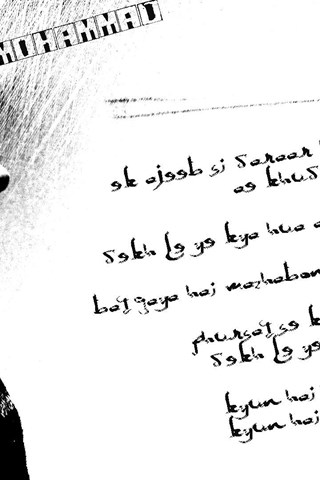 MOHAMMAD
ek ajeeb si Daraar
ae
Dekh le ye kya hua
bat gaya hai mazhabon
phursat se
Dekh le ye
kyun hai
kyun hai